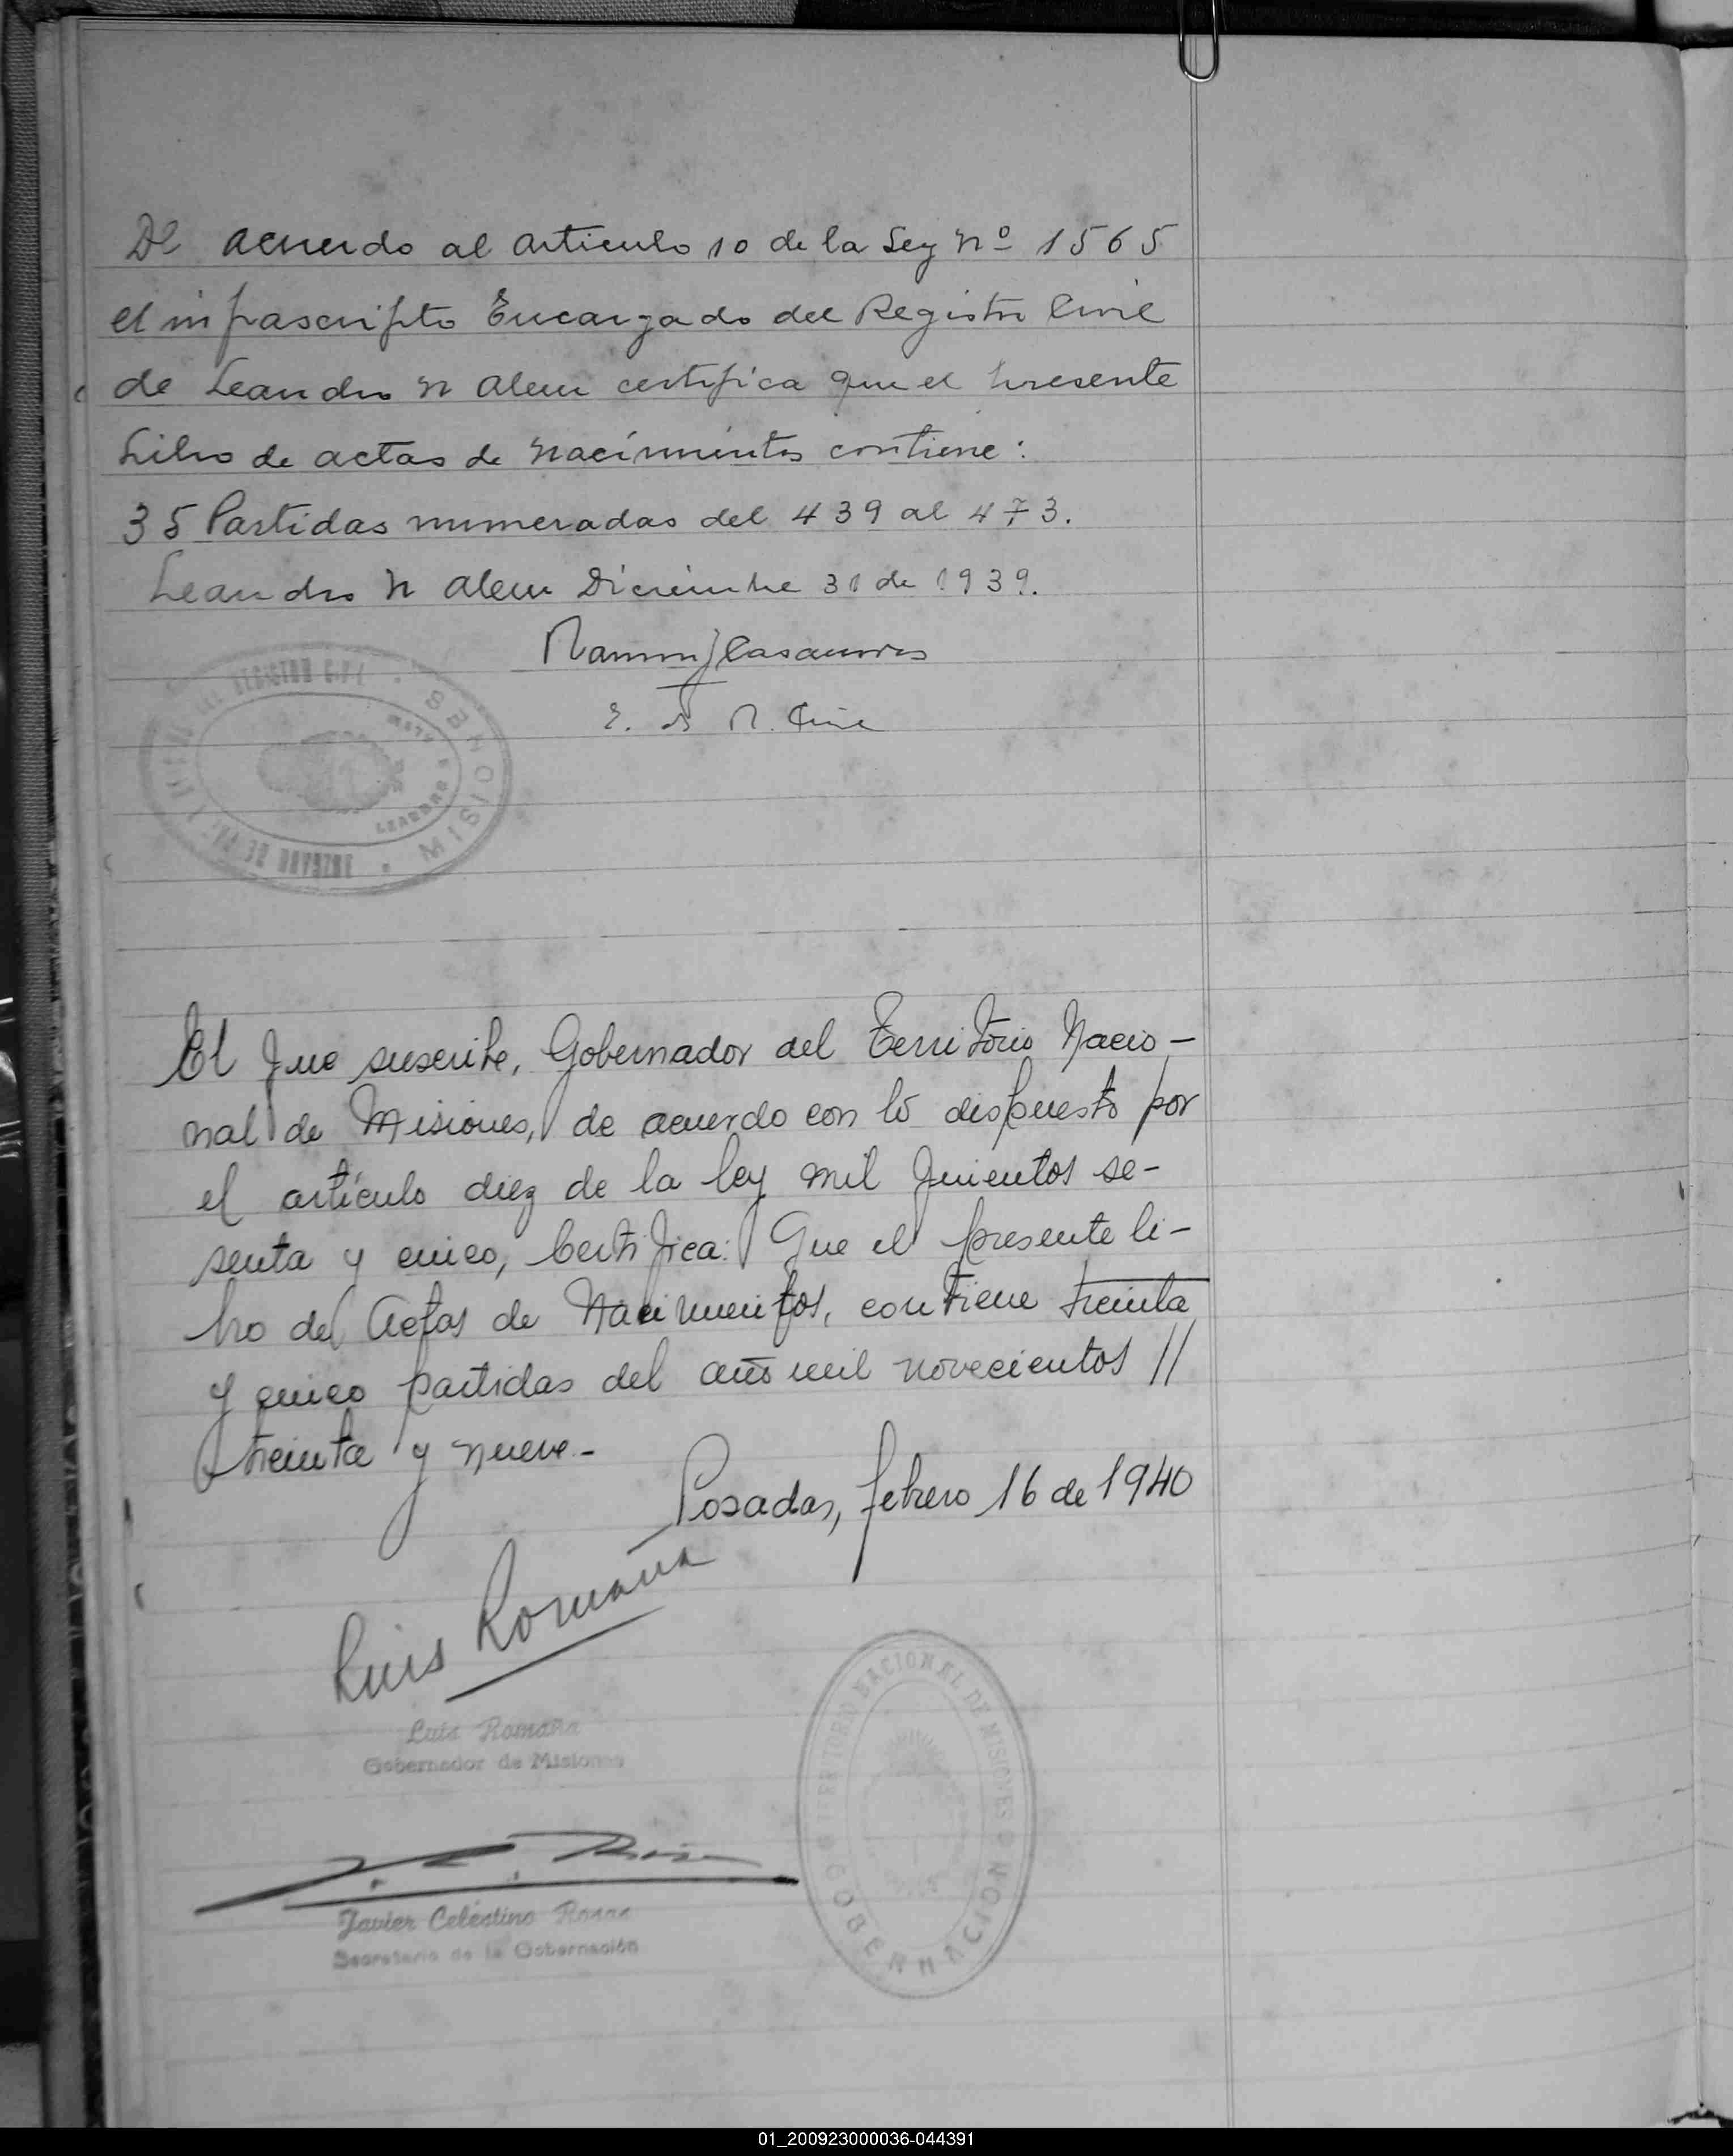 De acuerdo al articulo 10 de la Ley Nº 1565
el infrascripto Encargado del Registro Civil
de Leandro N Alem certifica que el presente
Libro de actas de Nacimientos contiene:
35 Partidas numeradas del 439 al 473.
Leandro N Alem Diciembre 31 de 1939.
Ramon J Casaurres
E. R. Civil
MISIONES
LEANDRO N ALEM
El que suscribe, Gobernador del Territorio Nacio-
nal de Misiones, de acuerdo con lo dispuesto por
el artículo diez de la ley mil quientos se-
senta y cinco, Certifica: Que el presente li-
bro de Actas de Nacimientos, contiene treinta
y cinco partidas del año mil novecientos //
treinta y nueve.-
Posadas, febrero 16 de 1940
Luis Romaña
Luis Romaña
Gobernador de Misiones
TERRITORIO NACIONAL DE MISIONES
GOBERNACION
Javier Celestino
Secretario de la Gobernación
01_200923000036-044391